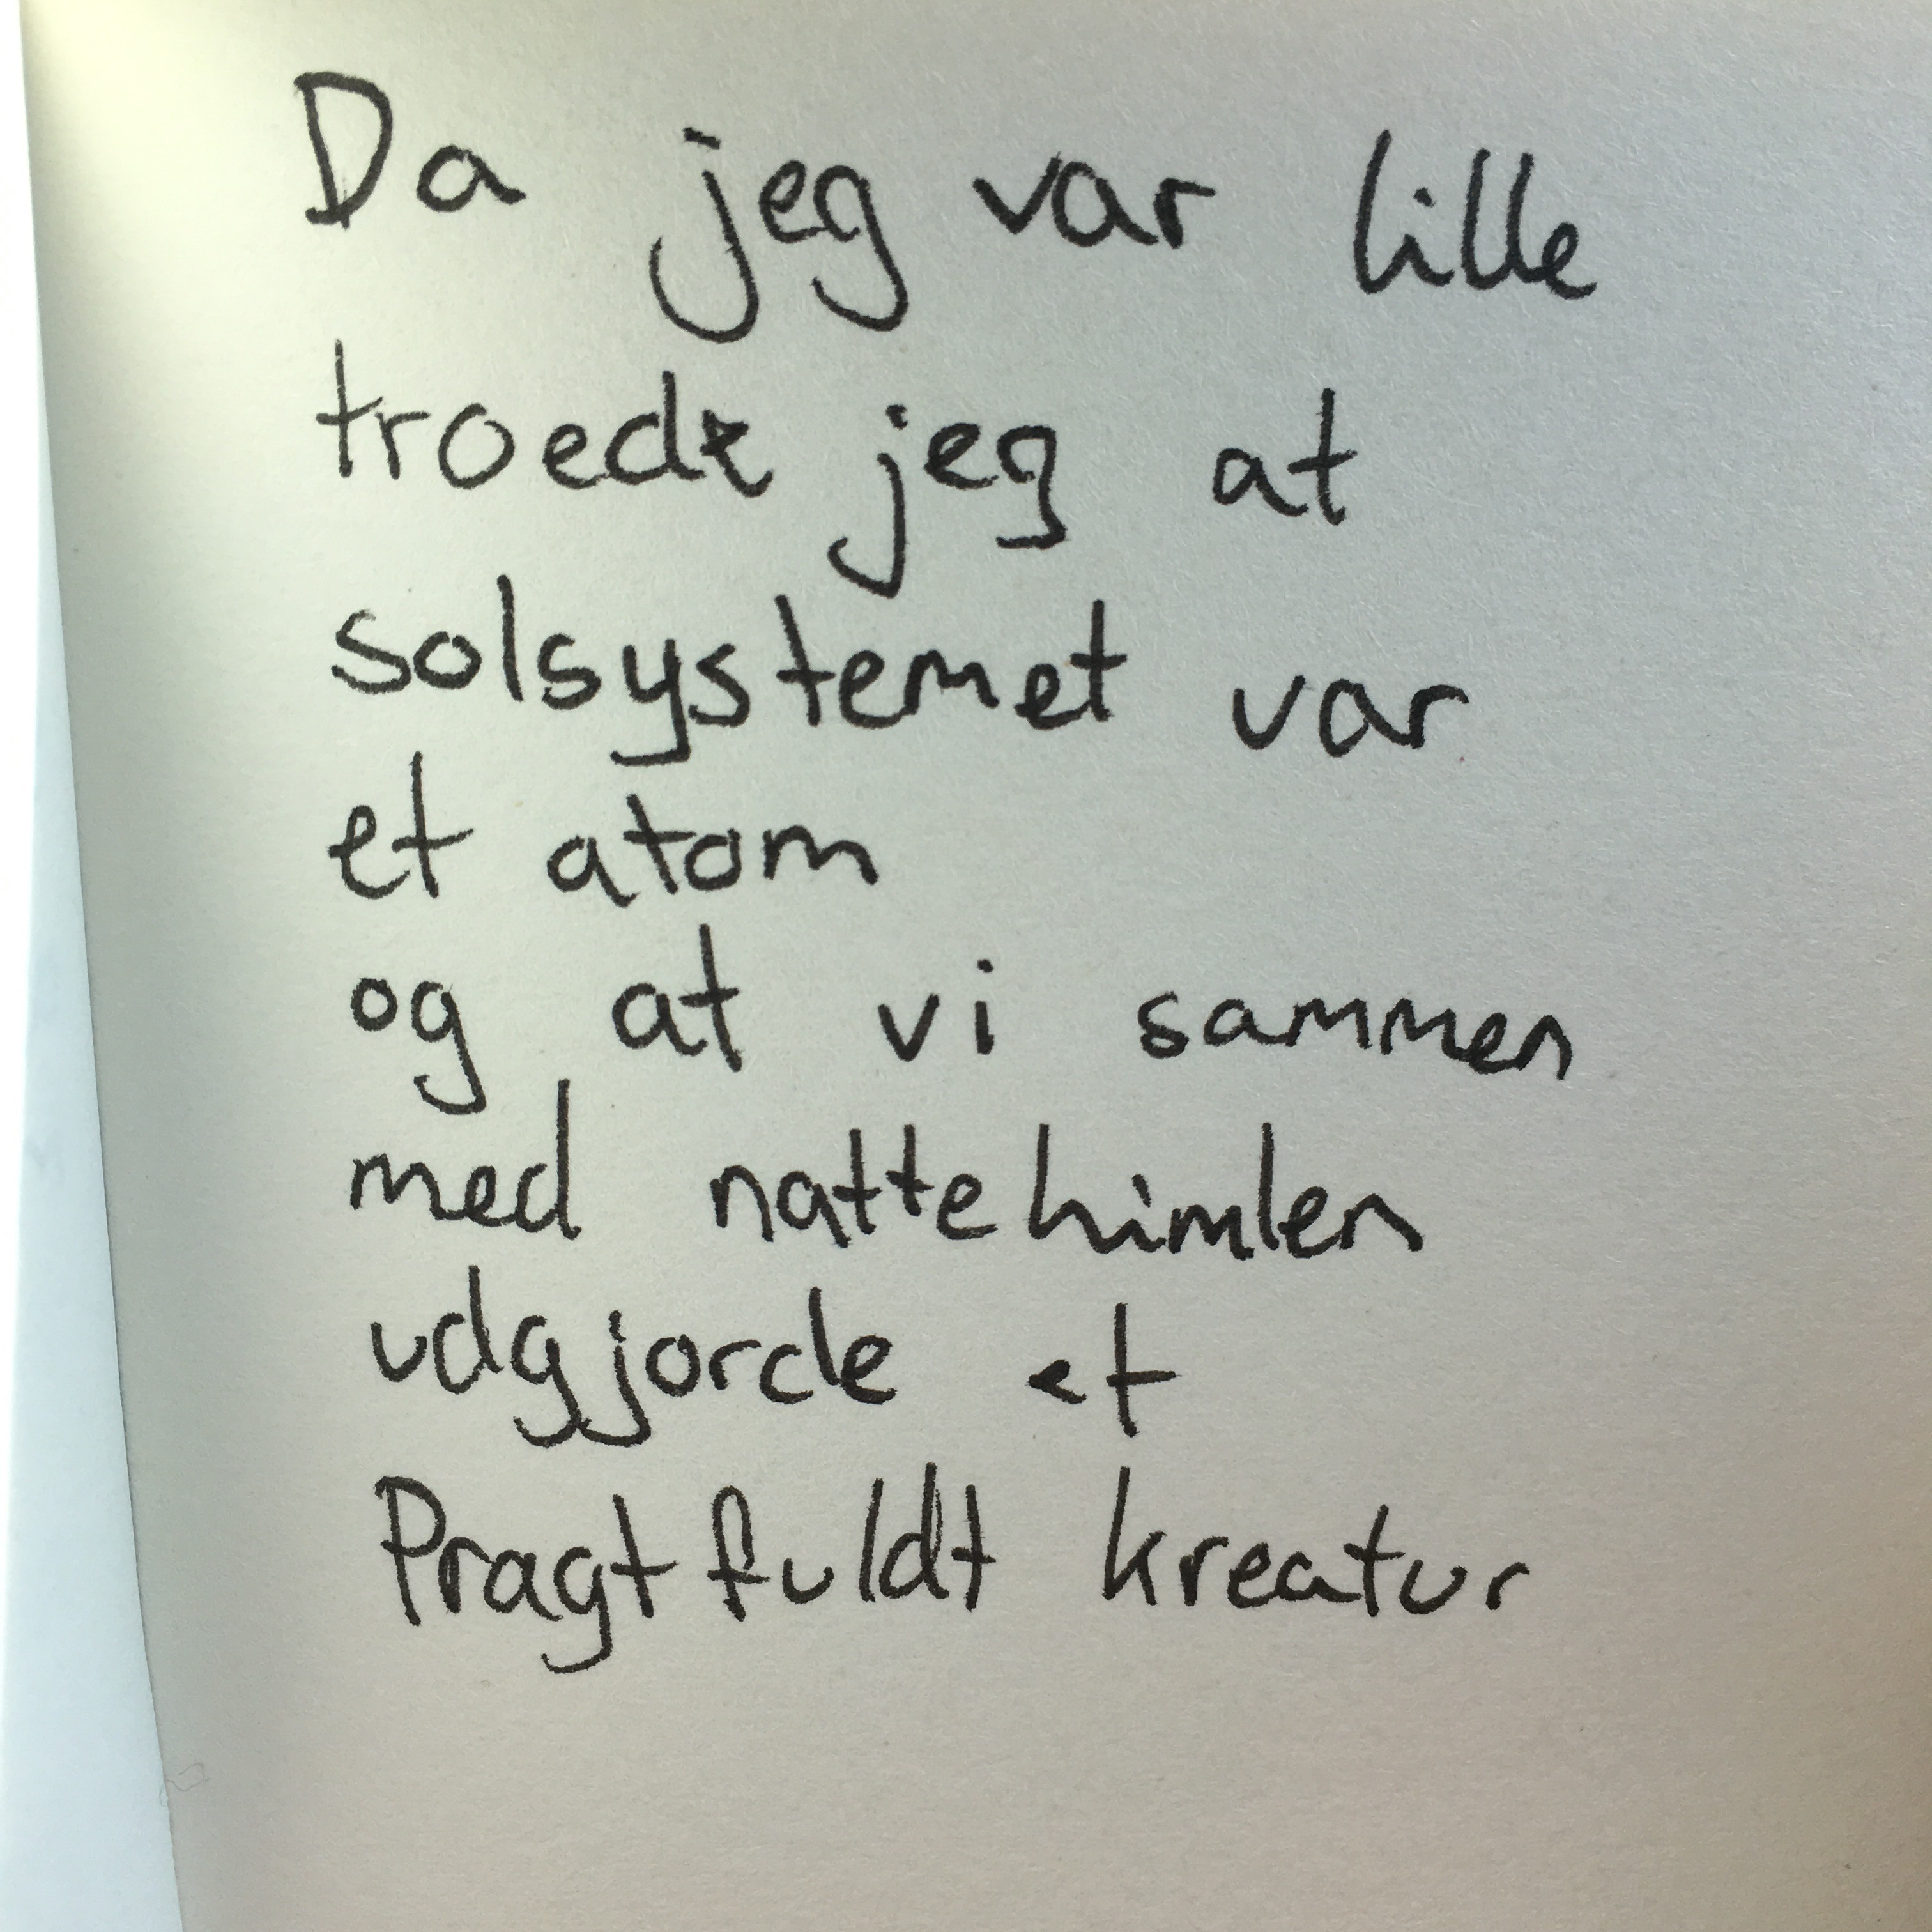 Da jeg var lille
troede jeg at
solsystemet var
et atom
og at vi sammen
med nattehimlen
udgjorde et
Pragtfuldt kreatur